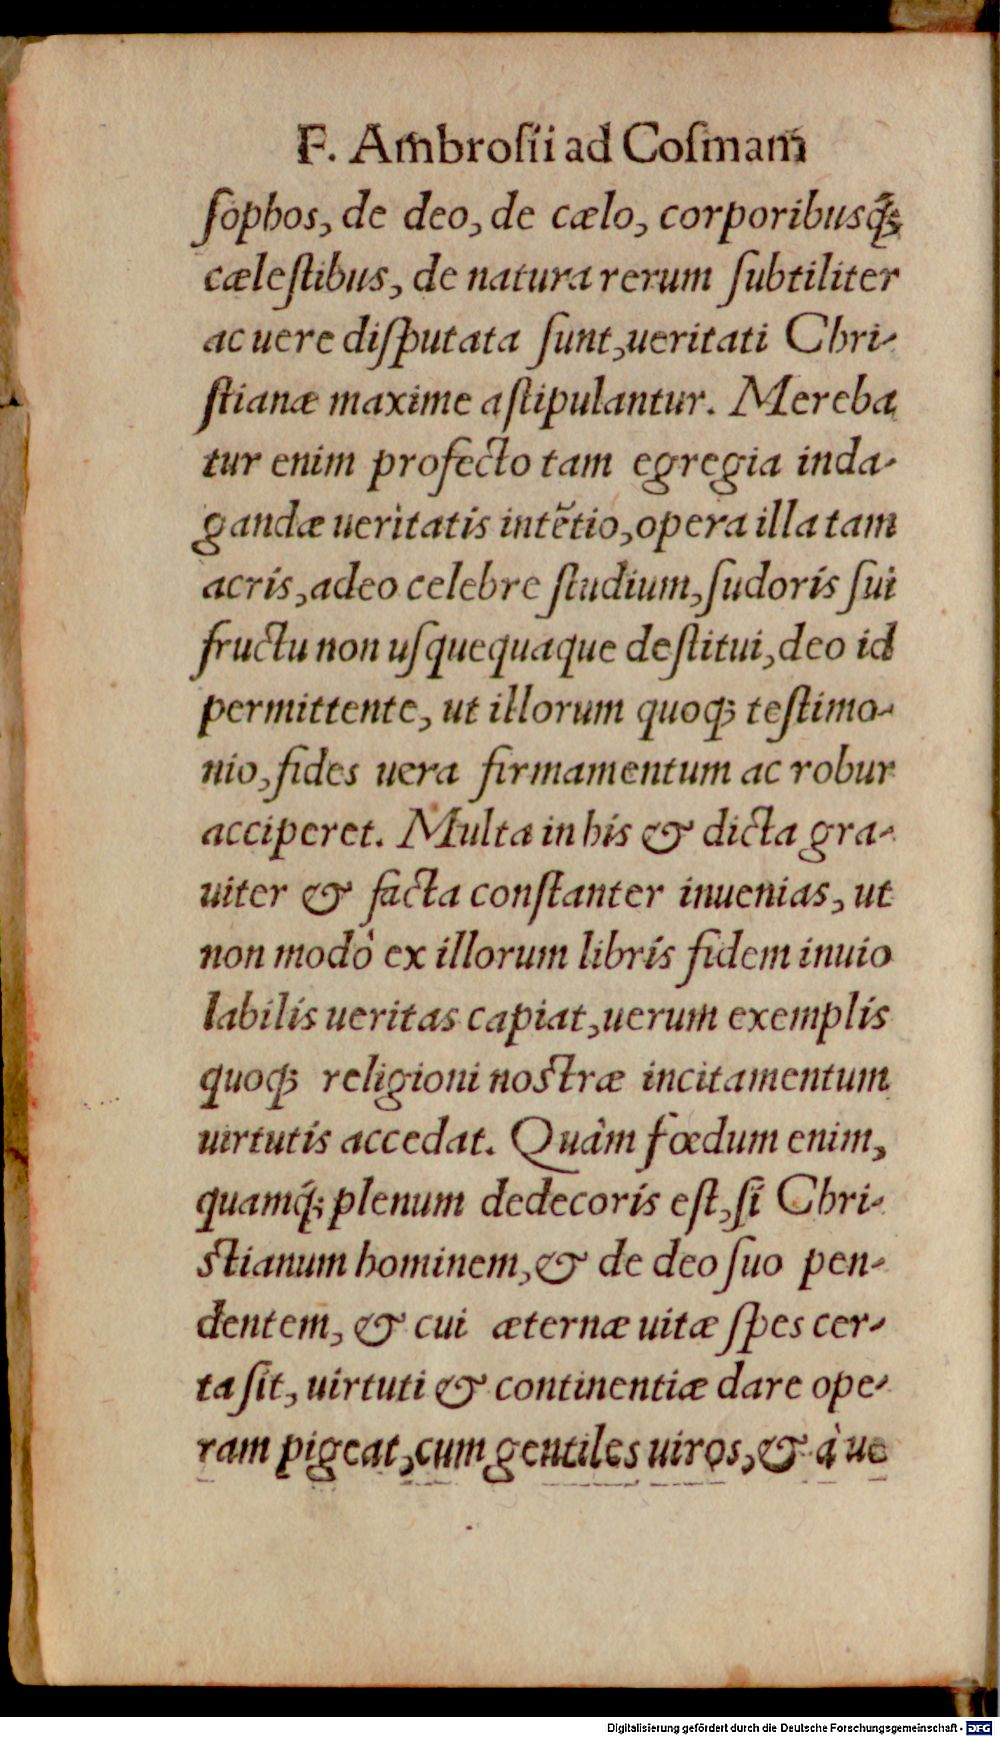 F. Ambrosii ad Cosmam
sophos, de deo, de cælo, corporibusq́;
cælestibus, de natura rerum subtiliter
ac uere disputata sunt, ueritati Chri-
stianæ maxime astipulantur. Mereba
tur enim profecto tam egregia inda-
gandæ ueritatis intẽtio, opera illa tam
acris, adeo celebre studium, sudoris sui
fructu non usquequaque destitui, deo id
permittente, ut illorum quoq; testimo-
nio, fides uera firmamentum ac robur
acciperet. Multa in his & dicta gra-
uiter & facta constanter inuenias, ut
non modò ex illorum libris fidem inuio
labilis ueritas capiat, uerum exemplis
quoq; religioni nostræ incitamentum
uirtutis accedat. Quàm fœdum enim,
quamq́; plenum dedecoris est, si Chri-
stianum hominem, & de deo suo pen-
dentem, & cui æternæ uitæ spes cer-
ta sit, uirtuti & continentiæ dare ope-
ram pigeat, cum gentiles uiros, & à ue
Digitalisierung gefördert durch die Deutsche Forschungsgemeinschaft - DFG